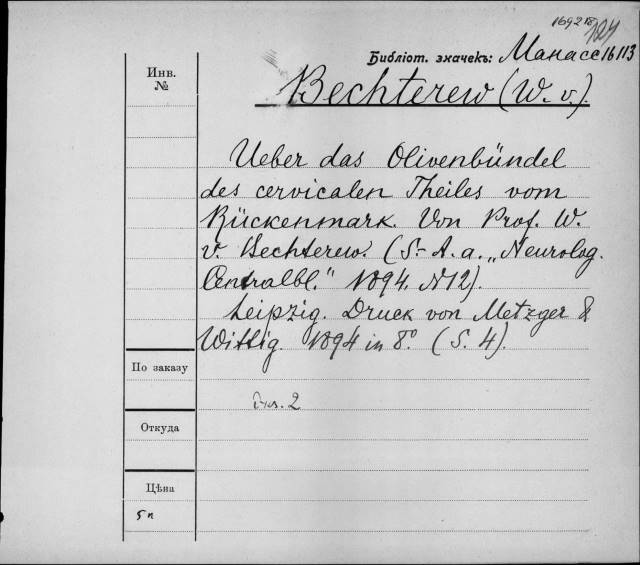 Библіот. значекъ: Манасс 16113
Инв.
№
Bechterew (W. v.).
Ueber das Olivenbündel
des cervicalen Theiles vom
Rückenmark. Von Prof. W.
v. Bechterew. (S.-A. a. „Neurolog.
Centralbl." 1894. N12).
Leipzig. Druck von Metzger &
Wittig. 1894 in 8° (S. 4).
По заказу
Откуда
Цѣна
5 к